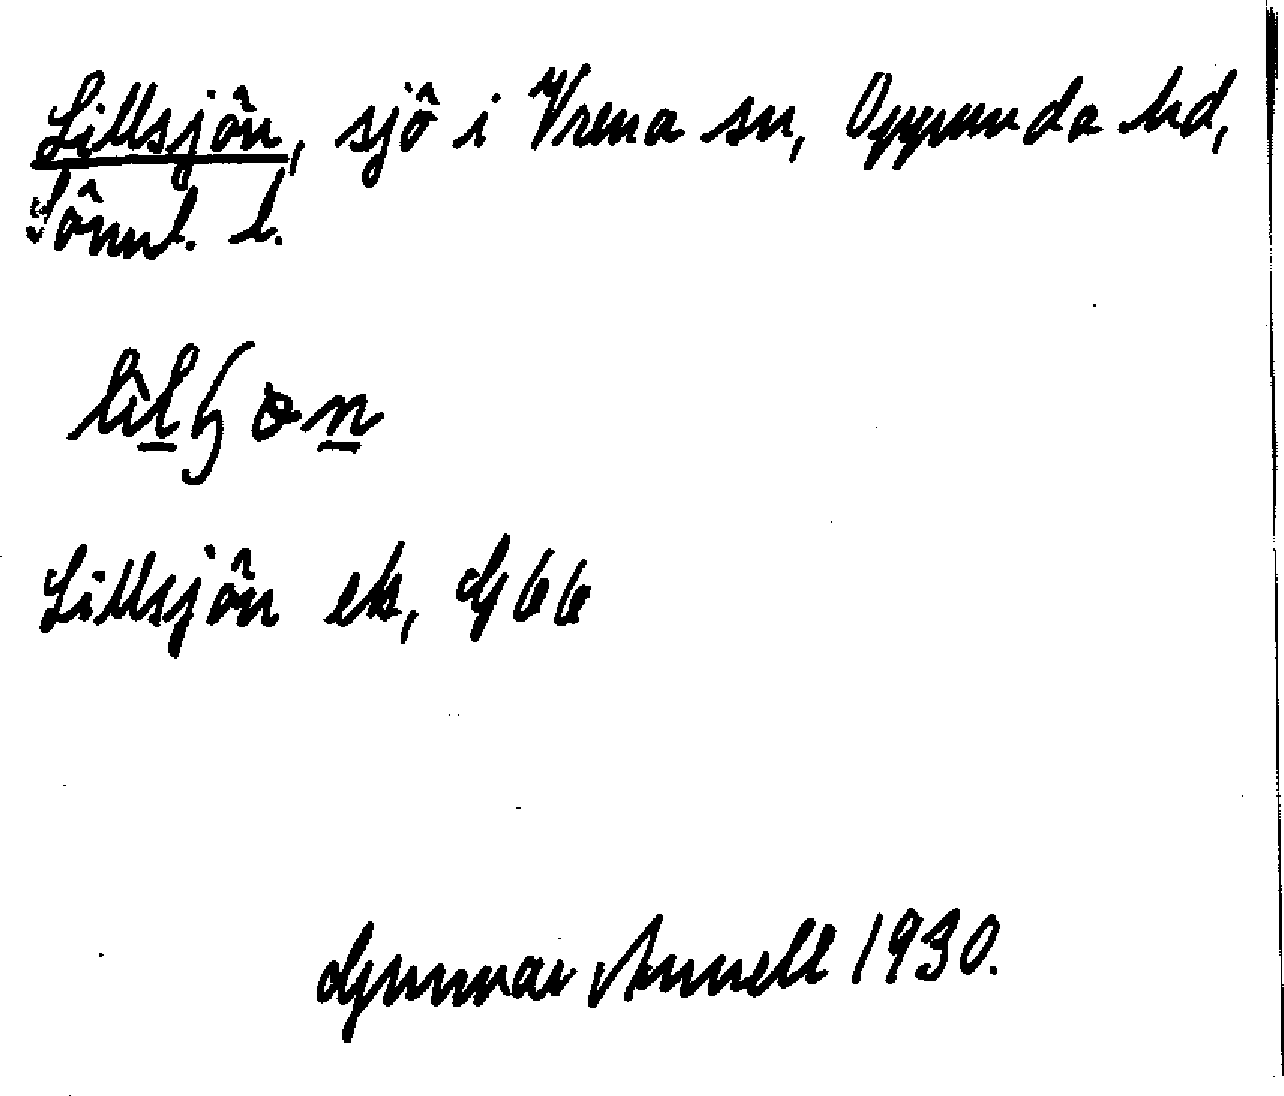 Lillsjön, sjö i Vrena sn, Oppunda hd,
Sörml. l.
Lillsjön ek, G 66
Gunnar Annell 1930.